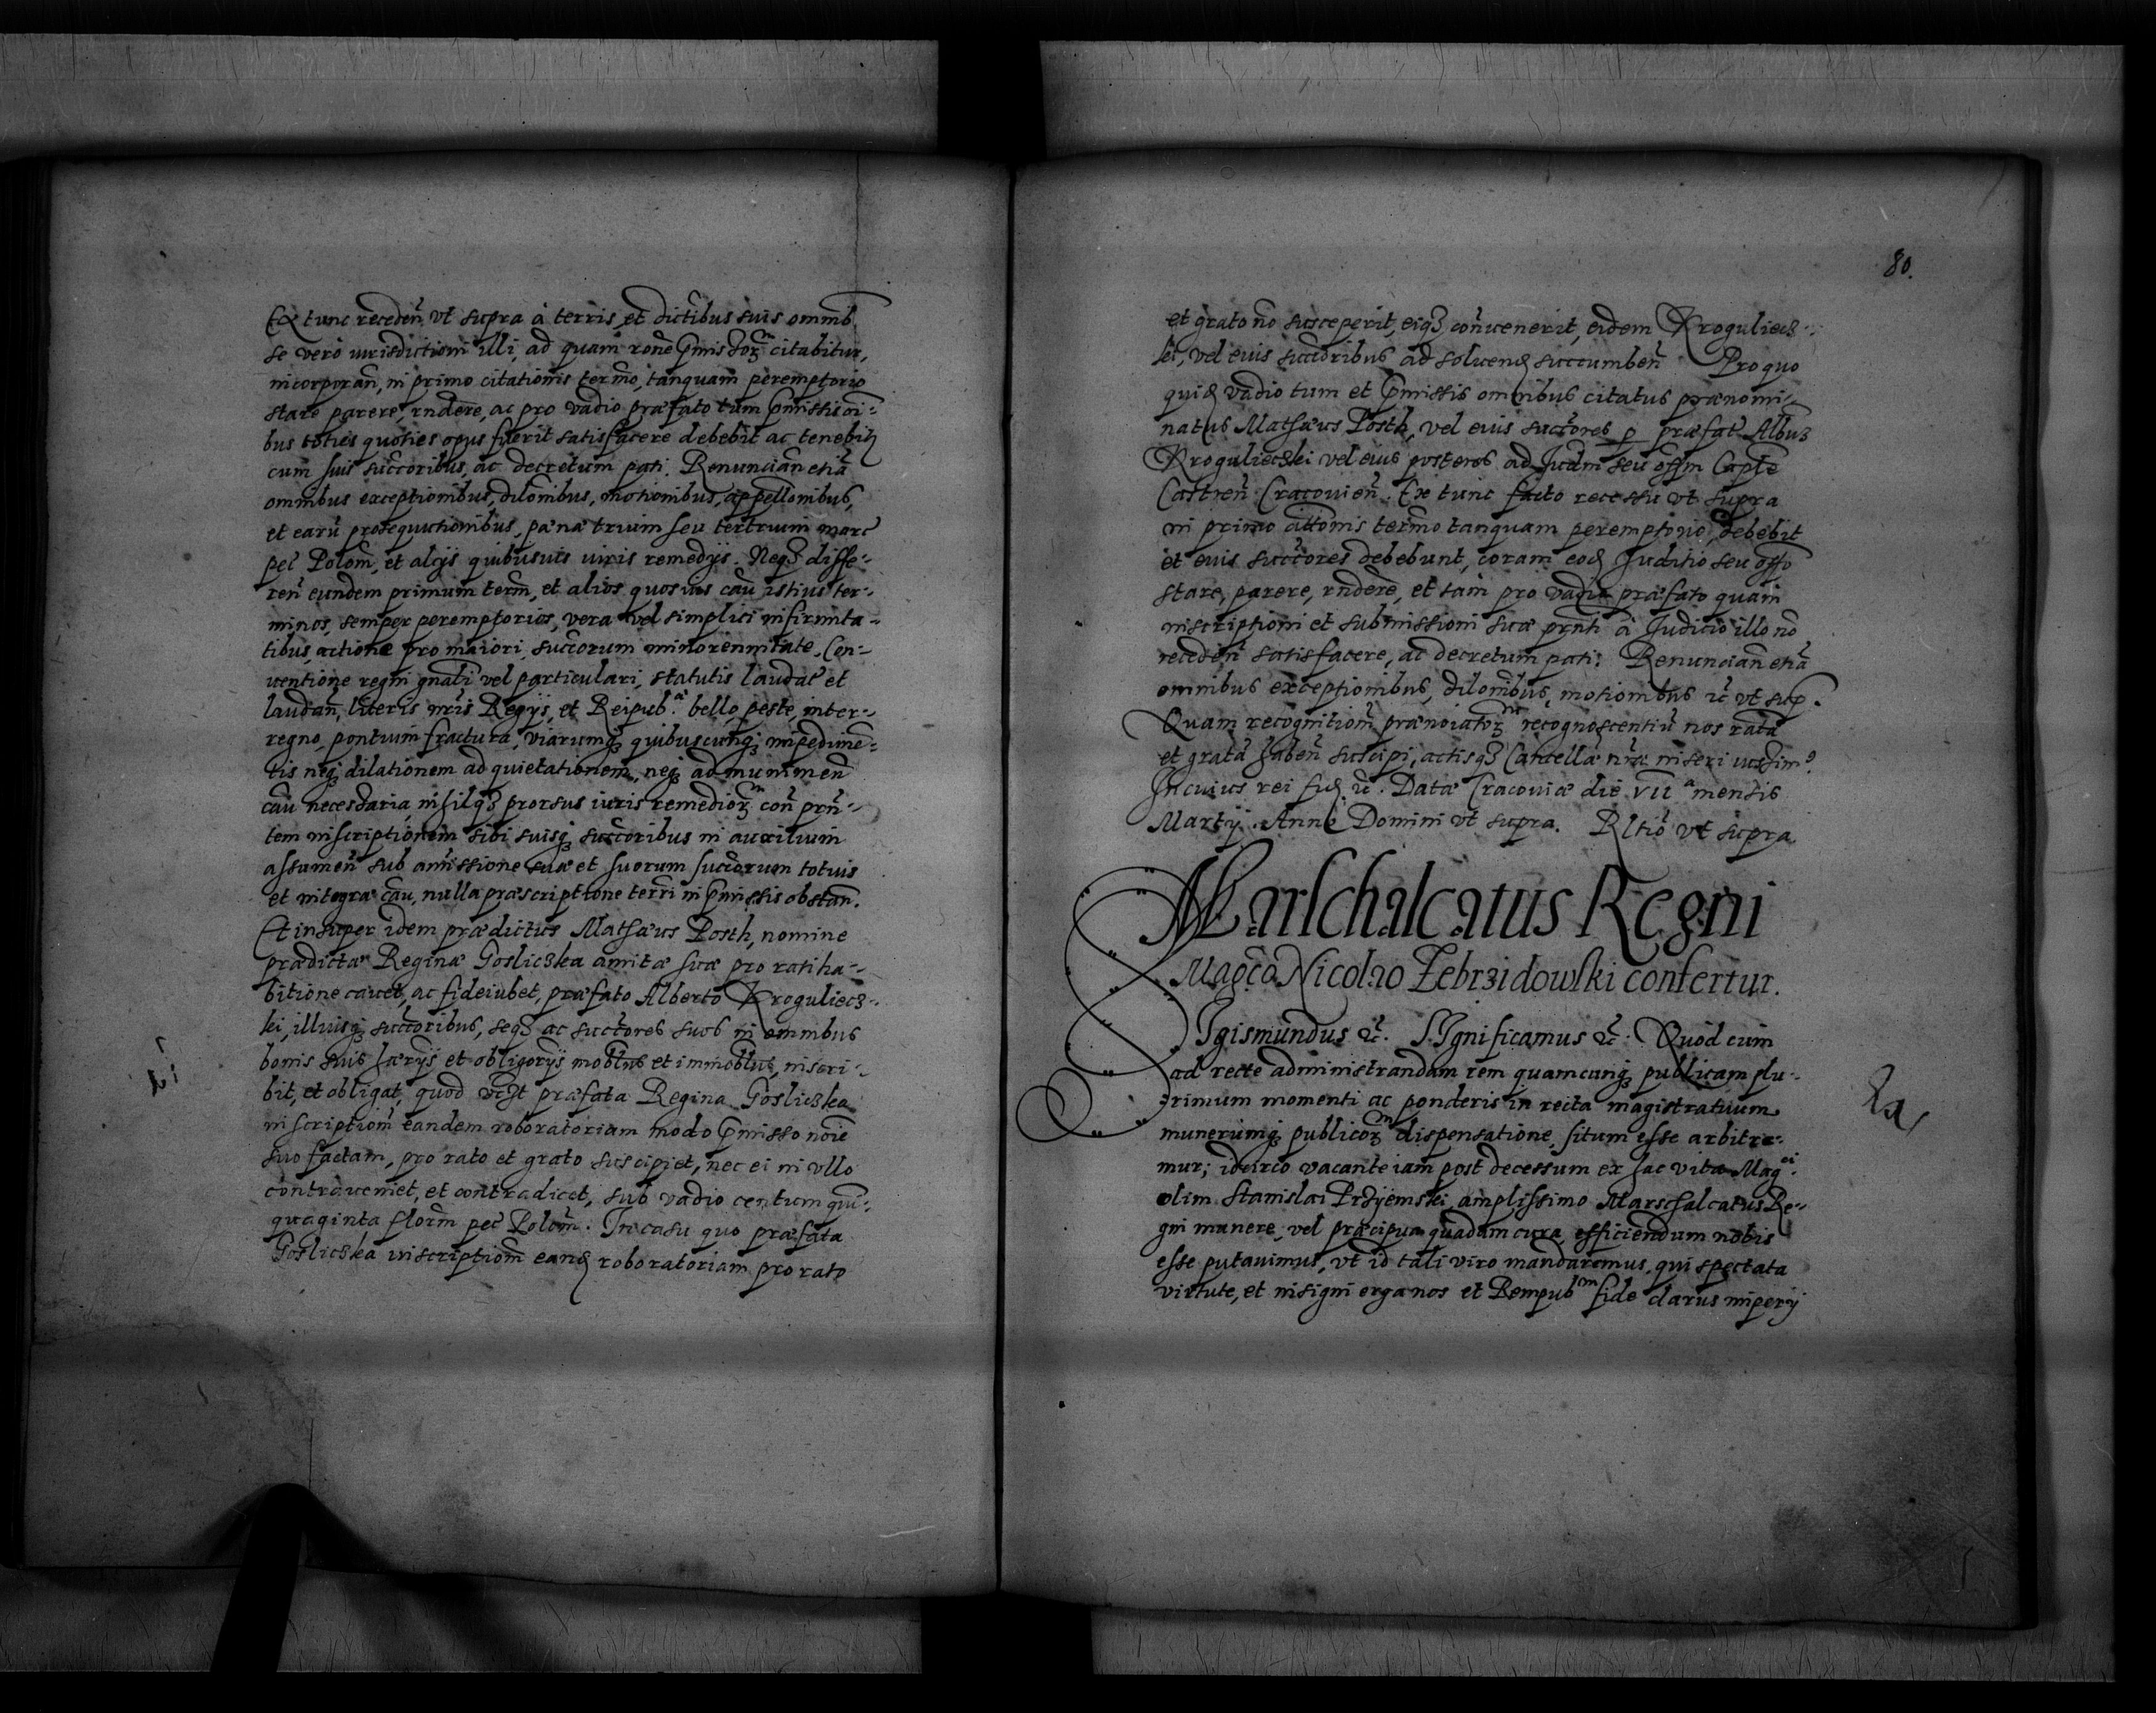 Ex tunc receden̄ vt supra à terris et dictībus suis omnib.
se vero iurisdictioni illi, ad quam rōne p̄missorꝝ citabitur,
incorporan̄, in primo citationis termo, tanquam peremptorio
stare parere, rndēre, ac pro vadio præfato tum p̄missis oī-
bus toties quoties opus fuerit satisfacere debebit ac tenebit
cum suis succoribus, ac decretum pati. Renuncian̄ etiā
omnibus exceptionibus, dilōnibus, motionibus, appellōnibus,
et earū prosequutionibus, pœnæ trium seu tertrium marc̄
pec̄ Polōm, et alijs quibusuis iuris remedijs. Neqꝫ diffe-
ren̄ eundem primum term̄, et alios quosuis cāu istius ter-
minos, semper peremptorios, vera vel simplici infirmita-
tibus, actione pro maiori, succorum minorennitate, Con-
uentione regni gnāli vel particulari, statutis laudat̄ et
laudan̄, literis nr̄is Regijs, et Reipub.æ bello, peste, inter-
regno, pontium fractura, viarumqꝫ quibuscunqꝫ impedimē-
tis neqꝫ dilationem ad quietationem, neqꝫ ad munimen̄
cāu necessaria, nihilqꝫ prorsus iuris remediorꝝ con̄ prn̄-
tem inscriptionem sibi suisqꝫ succoribus in auxilium
assumen̄ sub amissione suæ et suorum succorum totius
et integræ cāu, nulla præscriptione terrī in p̄missis obstan̄.
Et insuper idem prædictus Mathæus Posth, nomine
prædictæ Reginæ Gosliczka amitæ suæ pro ratiha-
bitione cauet, ac fideiubet, præfato Alberto Kroguliecz-
ki, illiusqꝫ succoribus, seqꝫ ac succores suos in omnibus
bonis suis hærijs et obligorijs mobībus et immobībus, inscri-
bit, et obligat, quod præfata Regina Gosliczka
inscriptiom̄ eandem roboratoriam modo p̄misso noīe
suo factam, pro rato et grato suscipiet, nec ei in vllo
contraueniet, et contradicet, sub vadio centum quin-
quaginta florm̄ pec̄ Polom̄. In casu quo præfata
Gosliczka inscriptiom̄ eand roboratoriam pro rato
80.
et grato nō susceperit, eiqꝫ conuenerit, eidem Kroguliecz-
ki, vel eius succoribus ad soluend succumben̄. Pro quo
quid vadio tum et p̄missis omnibus citatus prænomi-
natus Mathæus Posth, vel eius succores p præfat̄ Albuꝫ
Kroguliecski vel eius posteros ad Iudm̄ seu offm̄ Capte
Castren̄ Cracouien̄. Ex tunc facto recessu vt supra
in primo cittōnis termo tanquam peremptorio, debebit
et eius succores debebunt, coram eod Juditio seu offo
stare, parere, rndēre, et tam pro vadio præfato quam
inscriptioni et submissioni suæ prnti à Judicio illo nō
receden̄ satisfacere, ac decretum pati. Renuncian̄ etiā
omnibus exceptionibus, dilonibus, motionibus ꝛc̄ vt sup.
Quam recognitiom̄ prænoiatorꝝ recognoscentiū nos ratā
et gratā haben̄ suscipi, actisqꝫ Cancellæ nr̄æ inseri iussim9.
In cuius rei fid ꝛc̄. Datæ Cracouiæ die VII a mensis
Martij. Anno Domini vt supra. Rltio vt supra.
Marschalcatus Regni
Magco Nicolao Zebrzidowski confertur.
SIgismundus ꝛc̄. SIgnificamus ꝛc̄. Quod cum
ad recte administrandam rem quamcunqꝫ publicam plu-
rimum momenti ac ponderis in recta magistratuum
munerumqꝫ publicorꝝ dispensatione, situm esse arbitre-
mur; idcirco vacante iam post decessum ex hac vita Mag.ci
olim Stanislai Przyiemski, amplissimo Marschalcatus Re-
gni munere, vel præcipua quadam cura, efficiendum nobis
esse putauimus, vt id tali viro mandaremus, qui spectata
virtute, et insigni erga nos et Rempub.cam fide clarus imperij